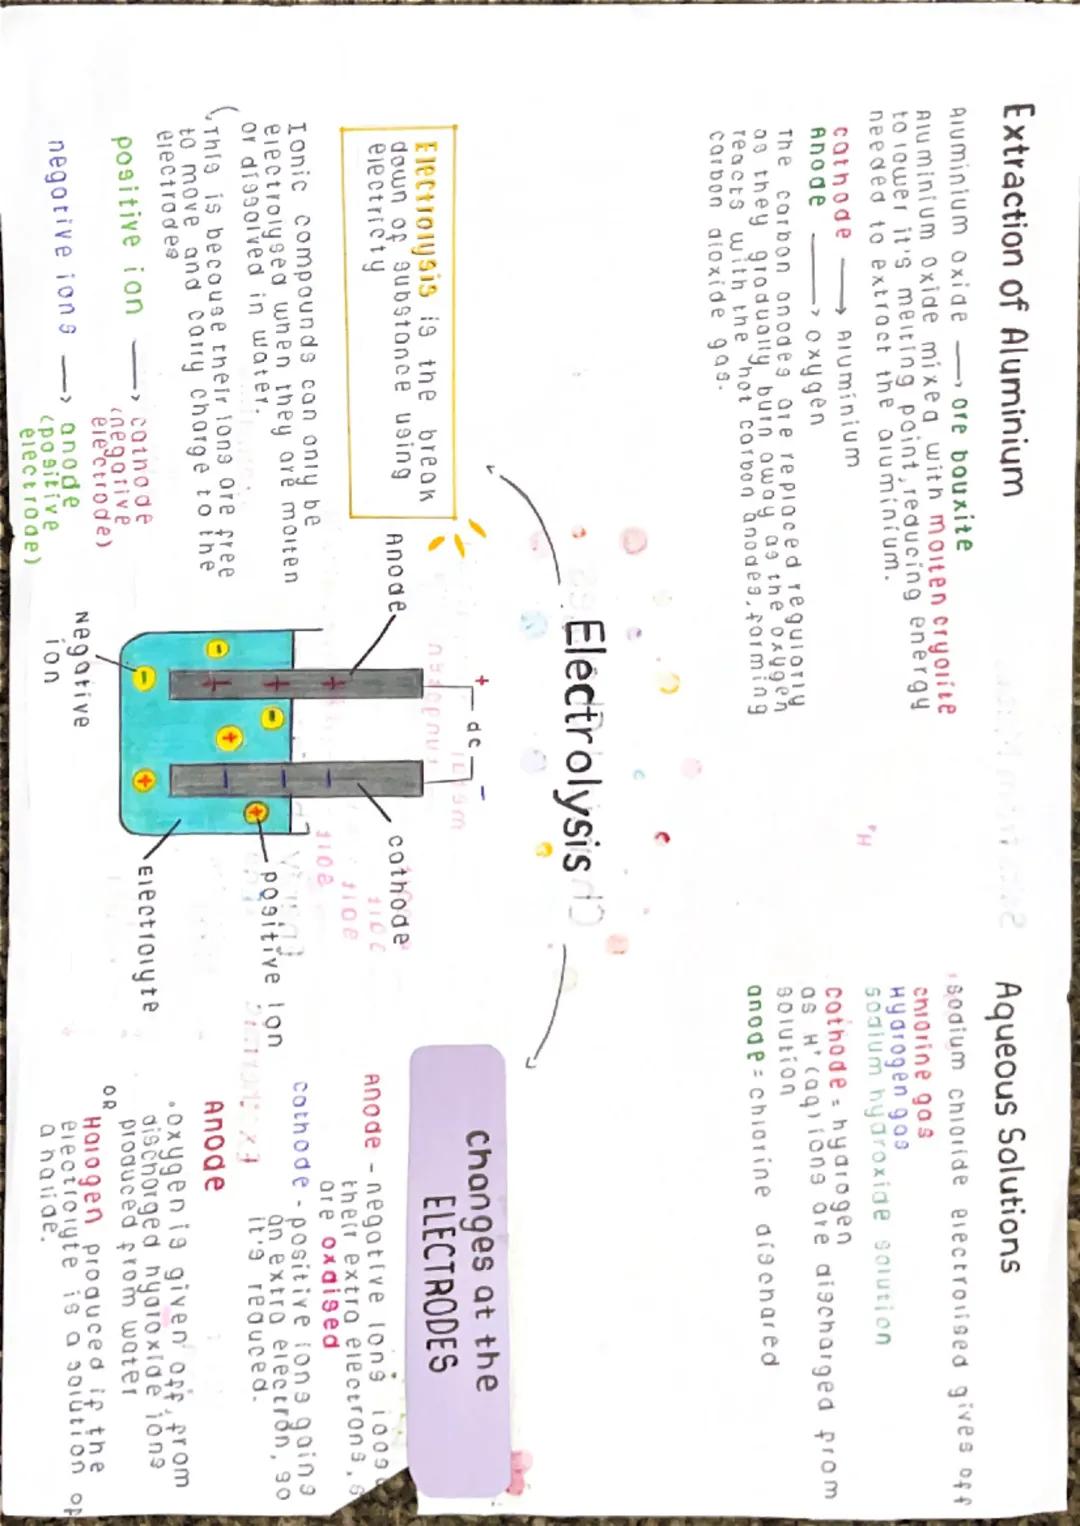 Extraction of Aluminium
Aluminium Oxide → ore bauxite
Aluminium Oxide mixed with molten cryolite
to lower it's melting point, reducing energy
needed to extract the aluminium.
cathode → Aluminium
Anode → oxygen
The carbon anodes are replaced regularly
as they gradually burn away as the oxygen
reacts with the hot carbon anodes, forming
carbon dioxide gas.
Aqueous Solutions
sodium chloride electrolised gives off
chlorine gas
Hydrogen gas
sodium hydroxide solution
cathode = hydrogen
as H⁺(aq) ions are discharged from
solution
anode = chlorine dischared
Electrolysis
Electrolysis is the break
down of substance using
electricity
Ionic compounds can only be
electrolysed when they are molten
or dissolved in water.
(This is because their ions are free
to move and carry charge to the
electrodes
positive ion → cathode
(negative
electrode)
negative ions → anode
(positive
electrode)
+ dc -
Anode
cathode
+ + +
- - -
-
-
-
+
+
+
positive ion
Negative
ion
Electrolyte
changes at the
ELECTRODES
Anode - negative ions loose
their extra electrons, s
are oxdised
cathode - positive ions gains
an extra electron, so
it's reduced.
Anode
• oxygen is given off, from
discharged hydroxide ions
produced from water
OR
Halogen produced if the
electrolyte is a solution of
a halide.